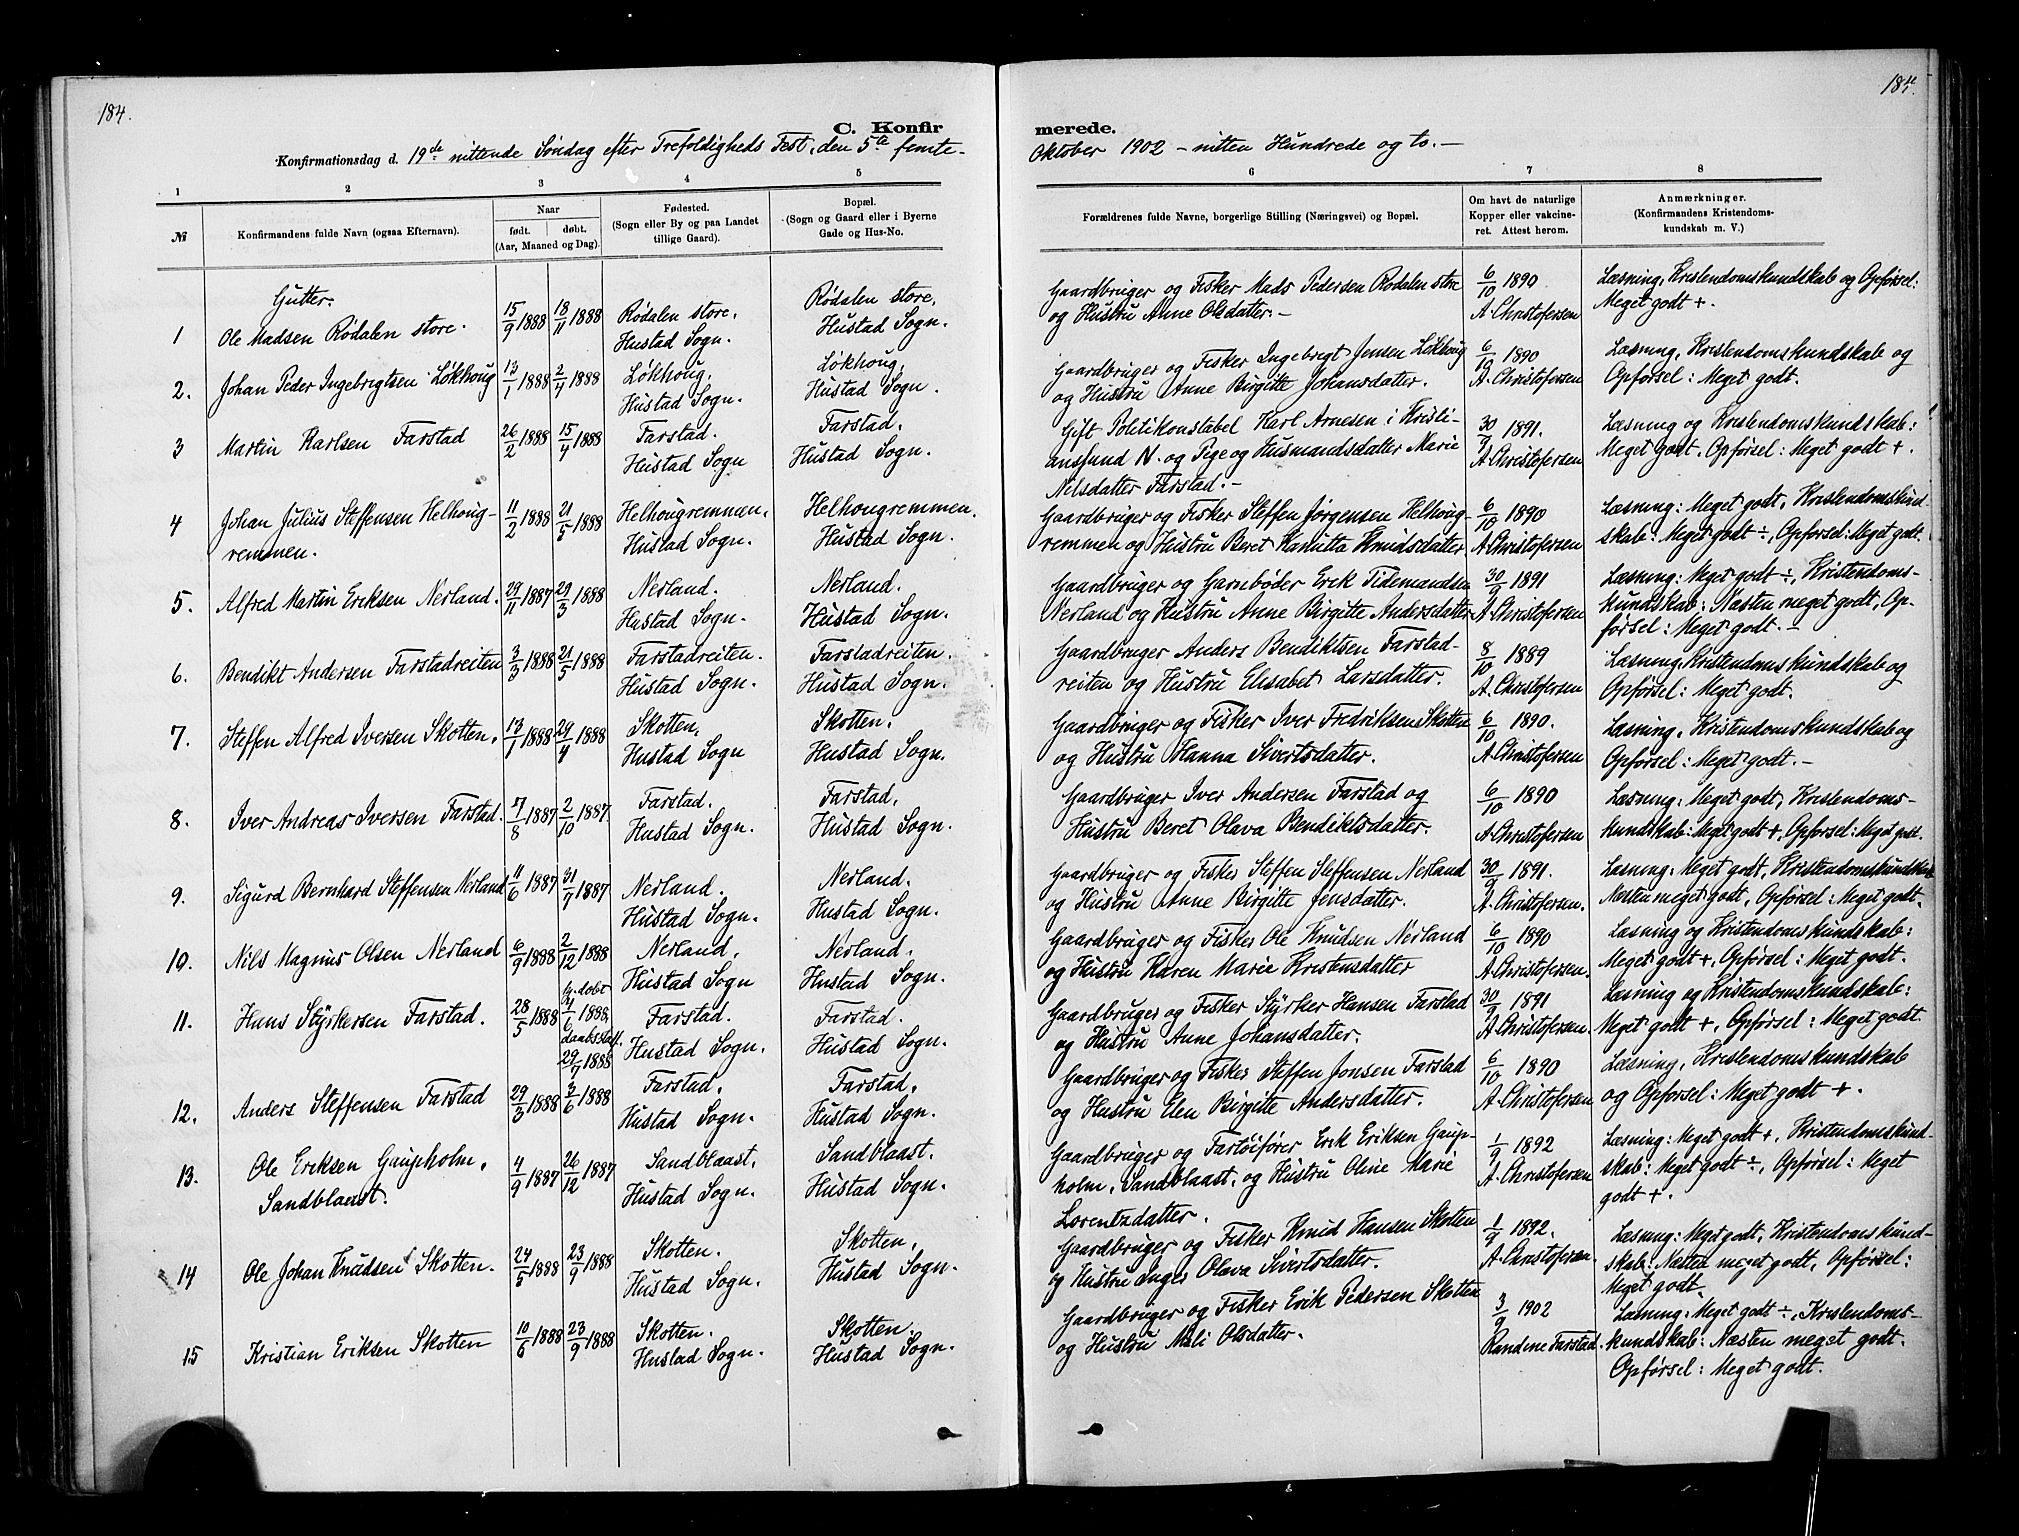 184.
C. Konfir
Konfirmationsdag d. 19de nittende Søndag efter Trefoldigheds Fest, den 5te femte-
1 2 3 4 5
№ Konfirmandens fulde Navn (ogsaa Efternavn). Naar født. døbt. (Aar, Maaned og Dag). Fødested. (Sogn eller By og paa Landet tillige Gaard). Bopæl. (Sogn og Gaard eller i Byerne Gade og Hus-No.
Gutter.
1 Ole Madsen Rødalen store. 15/9 1888 18/11 1888 Rødalen store, Rødalen store,
Hustad Sogn. Hustad Sogn.
2. Johan Peder Ingebrigtsen Løkhoug 13/1 1888 2/4 1888 Løkhoug, Løkhoug,
Hustad Sogn. Hustad Sogn.
3 Martin Karlsen Farstad 26/2 1888 15/4 1888 Farstad. Farstad.
Hustad Sogn Hustad Sogn.
4 Johan Julius Steffensen Helhoug- 11/2 1888 21/5 1888 Helhougremmen, Helhougremmen.
remmen. Hustad Sogn. Hustad Sogn.
5. Alfred Martin Eriksen Nerland. 29/11 1887 29/3 1888 Nerland. Nerland.
Hustad Sogn. Hustad Sogn.
6. Bendikt Andersen Farstadreiten 3/3 1888 21/5 1888 Farstadreiten. Farstadreiten.
Hustad Sogn. Hustad Sogn.
7. Steffen Alfred Iversen Skotten. 13/1 1888 29/4 1888 Skotten, Skotten.
Hustad Sogn Hustad Sogn.
8. Iver Andreas Iversen Farstad. 7/8 1887 2/10 1887. Farstad. Farstad,
Hustad Sogn. Hustad Sogn.
9. Sigurd Bernhard Steffensen Nerland 11/6 1887 31/7 1887 Nerland. Nerland.
Hustad Sogn. Hustad Sogn.
10. Nils Magnus Olsen Nerland 6/9 1888 2/12 1888 Nerland, Nerland.
Hustad Sogn Hustad Sogn.
11. Hans Styrkersen Farstad. 28/5 1888 døbt 1/6 1888, daabsstadf. 29/7 1888 Farstad. Farstad.
Hustad Sogn. Hustad Sogn.
12. Anders Steffensen Farstad 29/3 1888 3/6 1888 Farstad. Farstad.
Hustad Sogn. Hustad Sogn.
13. Ole Eriksen Gaupholm, 4/9 1887 26/12 1887 Sandblaast. Sandblaast.
Sandblaast. Hustad Sogn. Hustad Sogn.
14 Ole Johan Knudsen Skotten. 24/5 1888 23/9 1888 Skotten. Skotten,
Hustad Sogn. Hustad Sogn.
15 Kristian Eriksen Skotten 10/6 1888 23/9 1888 Skotten. Skotten.
Hustad Sogn. Hustad Sogn.
185.
merede.
Oktober 1902 - nitten Hundrede og to. -
6 7 8
Forældrenes fulde Navne, borgerlige Stilling (Næringsvei) og Bopæl. Om havt de naturlige Kopper eller vakcineret. Attest herom. Anmærkninger. (Konfirmandens Kristendomskundskab m. V.)
Gaardbruger og Fisker Mads Pedersen Rødalen store 6/10 1890 Læsning, Kristendomskundskab og Opførsel:
og Hustru Anne Olsdatter. - A. Christofersen Meget godt +.
Gaardbruger og Fisker Ingebrigt Jensen Løkhoug 6/10 1890 Læsning, Kristendomskundskab og
og Hustru Anne Birgitte Johansdatter. A. Christofersen Opførsel: Meget godt.
Gift Politikonstabel Karl Arnesen i Kristi- 30/9 1891. Læsning og Kristendomskundskab:
ansund N. og Pige og Husmandsdatter Marie A. Christofersen Meget godt, Opførsel: Meget godt +.
Nilsdatter Farstad. -
Gaardbruger og Fisker Steffen Jørgensen Helhoug- 6/10 1890 Læsning: Meget godt, Kristendomskund-
remmen og Hustru Beret Knudsdatter A. Christofersen skab: Meget godt ÷, Opførsel: Meget godt.
Gaardbruger og Garnbøder Erik Tidemandsen 30/9 1891 Læsning: Meget godt ÷, Kristendoms-
Nerland og Hustru Anne Birgitte Andersdatter A. Christofersen kundskab: Næsten meget godt, Op-
førsel: Meget godt. -
Gaardbruger Anders Bendiktsen Farstad- 8/10 1889 Læsning, Kristendomskundskab og
reiten og Hustru Elisabet Larsdatter. A. Christofersen Opførsel: Meget godt.
Gaardbruger og Fisker Iver Fredriksen Skotten 6/10 1890. Læsning, Kristendomskundskab og
og Hustru Hanna Sivertsdatter. A. Christofersen Opførsel: Meget godt. -
Gaardbruger Iver Andersen Farstad og 6/10 1890 Læsning: Meget godt, Kristendoms-
Hustru Beret Olava Bendiktsdatter. A. Christofersen kundskab: Meget godt +, Opførsel: Meget godt.
Gaardbruger og Fisker Steffen Steffensen Nerland 30/9 1891. Læsning: Meget godt, Kristendomskundskab
og Hustru Anne Birgitte Jensdatter. A. Christofersen. Næsten meget godt, Opførsel: Meget godt.
Gaardbruger og Fisker Ole Knudsen Nerland 6/10 1890 Læsning og Kristendomskundskab:
og Hustru Karen Marie Kristensdatter A. Christofersen. Meget godt +, Opførsel: Meget godt.
Gaardbruger og Fisker Styrker Hansen Farstad 30/9 1891 Læsning og Kristendomskundskab:
og Hustru Anne Johansdatter. A. Christofersen. Meget godt +, Opførsel: Meget godt.
Gaardbruger og Fisker Steffen Jonsen Farstad 6/10 1890 Læsning, Kristendomskundskab
og Hustru Elen Birgitte Andersdatter. A. Christofersen og Opførsel: Meget godt +.
Gaardbruger og Fartøifører Erik Eriksen Gaup- 1/9 1892 Læsning: Meget godt +, Kristendomskund-
holm, Sandblaast, og Hustru Oline Marie A. Christofersen skab: Meget godt ÷, Opførsel: Meget
Lorentzdatter. godt +.
Gaardbruger og Fisker Knud Hansen Skotten 1/9 1892. Læsning: Meget godt, Kristendomskund-
og Hustru Inger Olava Sivertsdatter. A. Christofersen. skab: Næsten meget godt, Opførsel:
Meget godt.
Gaardbruger og Fisker Erik Pedersen Skotten 3/9 1902 Læsning: Meget godt ÷, Kristendoms-
og Hustru Mali Olsdatter. Randine Farstad. kundskab: Næsten meget godt.
Opførsel: Meget godt.